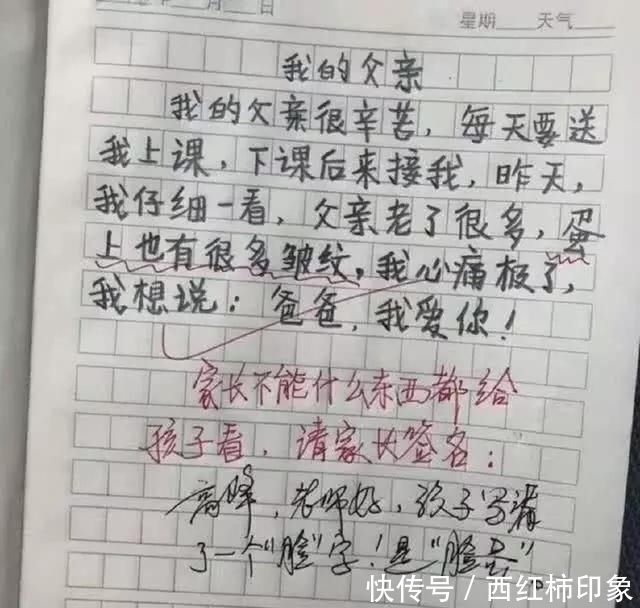 月 日 星期 天气
我的父亲
我的父亲很辛苦，每天要送
我上课，下课后来接我，昨天，
我仔细一看，父亲老了很多，蛋
上也有很多皱纹，我心痛极了，
我想说：爸爸，我爱你！
家长不能什么东西都给
孩子看，请家长签名：
高峰，老师好，孩子写漏
了一个“脸”字！是“脸蛋”
快传号／西红柿印象